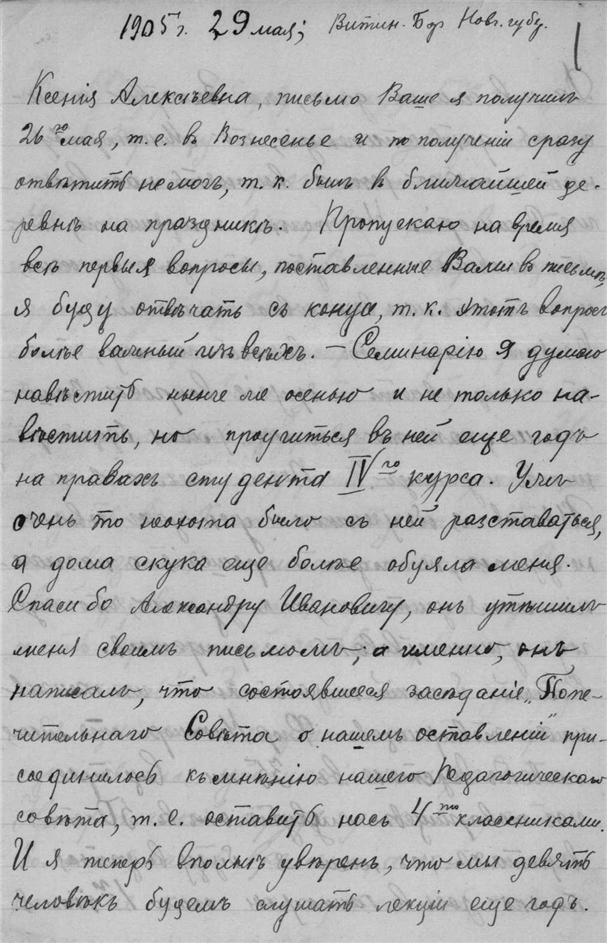 1905 г. 29 мая; Витин. Бор Новг. губ.
1
Ксенія Алексѣевна, письмо Ваше я получилъ
26го мая, т. е. въ Вознесенье и по полученіи сразу
отвѣтить не могъ, т. к. былъ в ближайшей де-
ревнѣ на праздникѣ. Пропускаю на время
всѣ первыя вопросы, поставленные Вами въ письмѣ,
я буду отвѣчать съ конца, т. к. этотъ вопросъ
болѣе важный изъ всѣхъ. – Семинарію я думаю
навѣстить нынче же осенью и не только на-
вѣстить, но проучиться въ ней еще годъ
на правахъ студента IVго курса. Ужъ
очень то неохота было съ ней разставаться,
а дома скука еще болѣе обуяла меня.
Спасибо Александру Ивановичу, онъ утѣшилъ
меня своимъ письмомъ; а именно, онъ
написалъ, что состоявшееся засѣданіе „Попе-
чительнаго Совѣта о нашемъ оставленіи" при-
соединилось къ мнѣнію нашего Педагогическаго
совѣта, т. е. оставить насъ 4ми классниками.
И я теперь вполнѣ увѣренъ, что мы девять
человѣкъ будемъ слушать лекціи еще годъ.